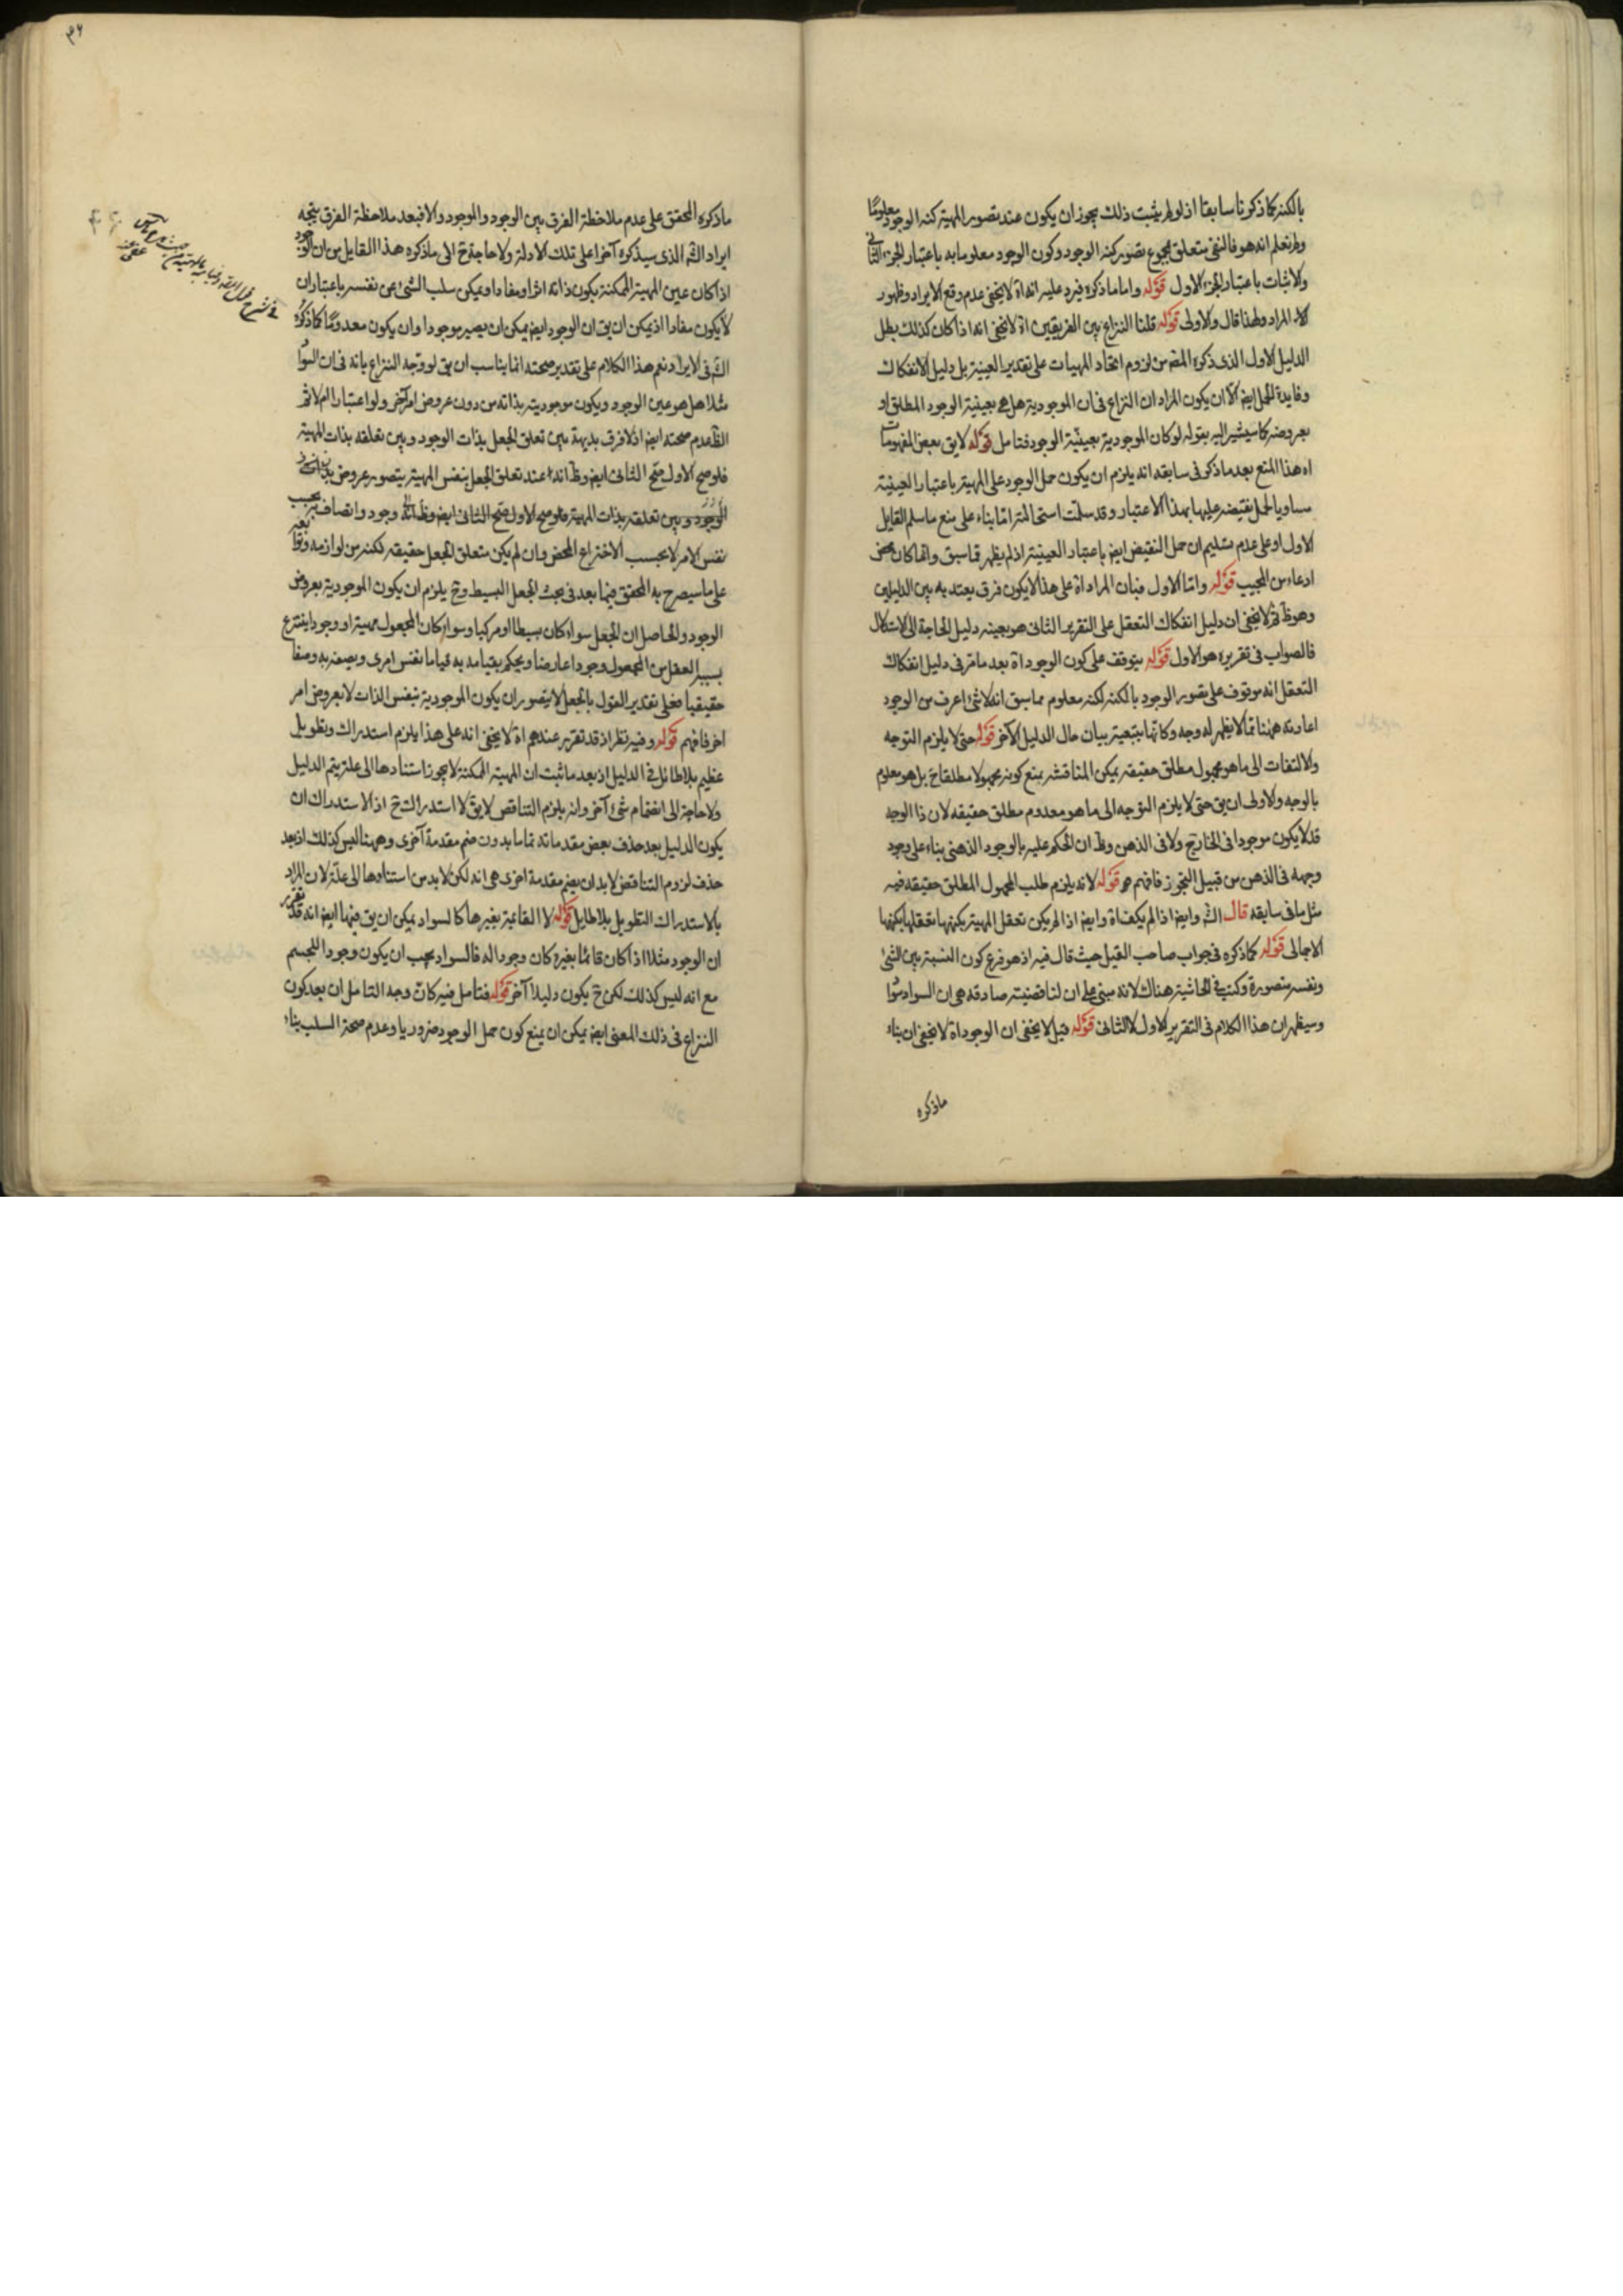 بالكنه كما ذكرنا سابقا اذ لو لم يثبت ذلك يجوز ان يكون عند تصور المهية كنه الوجود معلومًا
ولم نعلم انه هو فالنفى متعلق بمجموع تصور كنه الوجود وكون الوجود معلوما به باعتبار الجزء الثانى
والاثبات باعتبار الجزء الاول قوله واما ما ذكره فيرد عليه انه اه لا يخفى عدم وقع الايراد وظهور
المراد ولهذا قال والاولى قوله قلنا النزاع بين الفريقين اه لا يخفى انه اذا كان كذلك بطل
الدليل الاول الذى ذكره المصه من لزوم اتحاد المهيات على تقدير العينية بل دليل الانفكاك
وفايدة الحمل ايضا الا ان يكون المراد ان النزاع فى ان الموجودية هل هى بعينية الوجود المطلق او
بعروضه كما سيشير اليه بقوله لو كان الموجودية بعينيّة الوجود فتامل قوله لا يق بعض المفهومات
اه هذا المنع بعد ما ذكر فى سابقه انه يلزم ان يكون حمل الوجود على المهية باعتبار العينية
مساويا لحمل نقيضه عليها بهذا الاعتبار وقد سلمت استحالته اما بناء على منع ما سلم القايل
الاول او على عدم تسليم ان حمل النقيض ايض باعتبار العينية اذ لم يظهر مما سبق وانما كان محض
ادعاء من المجيب قوله واما الاول فبان المراد اه على هذا لا يكون فرق يعتد به بين الدليلين
وهو ظ ثم لا يخفى ان دليل انفكاك التعقل على التقرير الثانى هو بعينه دليل الحاجة الى الاستدلال
فالصواب فى تقريره هو الاول قوله يتوقف على كون الوجود اه بعد ما مر فى دليل انفكاك
التعقل انه موقوف على تصور الوجود بالكنه لكنه معلوم مما سبق انه لا شئ اعرف من الوجود
اعادته ههنا مما لا يظهر له وجه وكانها بتبعية بيان حال الدليل الآخر قوله حتى لا يلزم التوجه
والالتفات الى ما هو مجهول مطلق حقيقة يمكن المناقشه بمنع كونه مجهولا مطلقا ح بل هو معلوم
بالوجه والاولى ان يق حتى لا يلزم التوجه الى ما هو معدوم مطلق حقيقه لان ذا الوجه
قد لا يكون موجودا فى الخارج ولا فى الذهن وظ ان الحكم عليه بالوجود الذهنى بناء على وجود
وجهه فى الذهن من قبيل التجوز فافهم قوله لانه يلزم طلب المجهول المطلق حقيقه فيه
مثل ما فى سابقه قال الش وايض اذا لم يكف اه وايض اذا لم يكن تعقل المهية بكنهها تعقلها بكنهها
الاجمالى قوله كما ذكره فى جواب صاحب القيل حيث قال فيه اذ هو فرع كون النسبة بين الشئ
ونفسه متصورة وكتب فى الحاشية هناك لانه مبنى على ان لنا قضية صادقه هى ان السواد سوا
وسيظهر ان هذا الكلام فى التقرير الاول لا الثانى قوله قيل لا يخفى ان الوجود اه لا يخفى ان بناء
ماذكره
ماذكره المحقق على عدم ملاحظة الفرق بين الوجود والموجود والا فبعد ملاحظة الفرق يتجه
ايراد الش الذى سيذكره آخرا على تلك الادلة ولا حاجة ح الى ماذكره هذا القايل من ان الوجود
اذا كان عين المهية الممكنة يكون ذاته اثرا ومفادا ويمكن سلب الشئ عن نفسه باعتبار ان
لا يكون مفادا اذ يمكن ان يق ان الوجود ايض يمكن ان يصير موجودا وان يكون معدومًا كما ذكره
الش فى الايراد نعم هذا الكلام على تقدير صحته انما يناسب ان يق لو وجه النزاع بانه فى ان السوا
مثلا هل هو عين الوجود ويكون موجوديته بذاته من دون عروض امر آخر ولو اعتبار الم لا ثم
الظ عدم صحته ايض اذ لا فرق بديهة بين تعلق الجعل بذات الوجود وبين تعلقه بذات المهية
فلو صح الاول صح الثانى ايض وظ انه عند تعلق الجعل بنفس المهية يتصور عروض
الوجود وبين تعلقه بذات المهية فلو صح الاول صح الثانى ايض وظ انه وجود واتصاف به بحسب
نفس الامر لا بحسب الاختراع المحض وان لم يكن متعلق الجعل حقيقه لكنه من لوازمه وتوابعه
على ما سيصرح به المحقق فيما بعد فى بحث الجعل البسيط وح يلزم ان يكون الموجودية بعروض
الوجود والحاصل ان الجعل سواء كان بسيطا او مركبا وسواء كان المجعول مهية او وجودا ينتزع
بسببه العقل من المجعول وجودا عارضا ويحكم بقيامه به قياما نفس امرى ويصفه به وصفا
حقيقيا فعلى تقدير القول بالجعل لا يتصور ان يكون الموجودية بنفس الذات لا بعروض امر
اخر فافهم قوله وفيه نظر اذ قد تقرر عندهم اه لا يخفى انه على هذا يلزم استدراك وتطويل
عظيم بلا طائل فى الدليل اذ بعد ما ثبت ان المهية الممكنة لا يجوز استنادها الى علة يتم الدليل
ولا حاجة الى انضمام شئ آخر وانه يلزم التناقض لا يق لا استدراك ح اذ الاستدراك ان
يكون الدليل بعد حذف بعض مقدماته تماما بدون ضم مقدمة آخرى وههنا ليس كذلك اذ بعد
حذف لزوم التناقض لا بد ان يضم مقدمة اخرى هى انه لكن لا بد من استنادها الى علّة لان المراد
بالاستدراك التطويل بلا طايل قوله لا القائمة بغيرها كالسواد يمكن ان يق فيها ايض انه قد تقرر
ان الوجود مثلا اذا كان قائمًا بغيره كان وجودا له فالسواد يجب ان يكون وجودا للجسم
مع انه ليس كذلك لكن ح يكون دليلا آخر قوله فتامل فيه كان وجه التامل ان بعد كون
النزاع فى ذلك المعنى ايض يمكن ان يمنع كون حمل الوجود ضروريا وعدم صحة السلب بناء